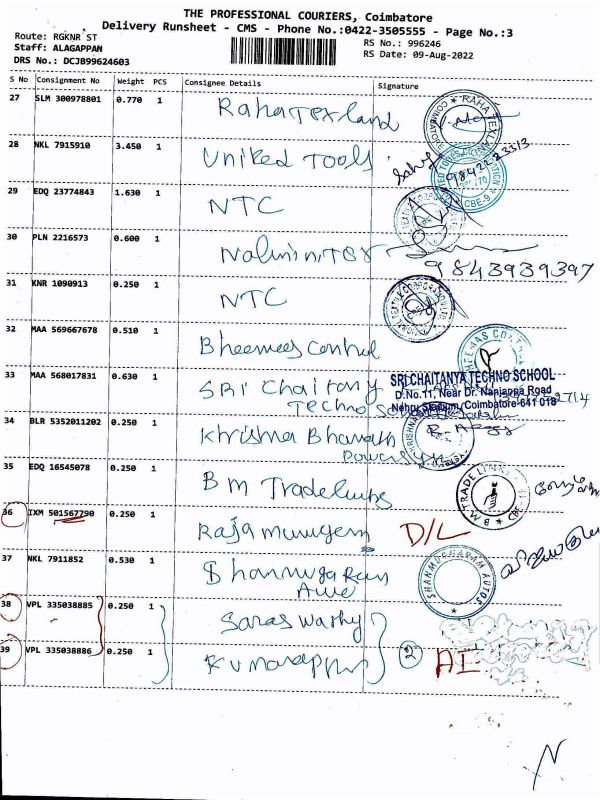 THE PROFESSIONAL COURIERS, Coimbatore
Delivery Runsheet - CMS - Phone No.:0422-3505555 - Page No.:3
Route: RGKNR ST
RS No.: 996246
Staff: ALAGAPPAN
RS Date: 09-Aug-2022
DRS No.: DCJB99624603
S No Consignment No Weight PCS Consignee Details Signature
27 SLM 300978801 0.770 1 Raha Texland
RAHA TEXLAND
28 NKL 7915910 3.450 1 United Tools
CBE-9
29 EDQ 23774843 1.630 1 NTC
30 PLN 2216573 0.600 1
9843939397
31 KNR 1090913 0.250 1 NTC
32 MAA 569667678 0.510 1 Bheemees Control
33 MAA 568017831 0.630 1 SRI Chaitany
Techno
SRI CHAITANYA TECHNO SCHOOL
D.No.11, Near Dr. Nanjappa Road
Nehru Stadium, Coimbatore-641 018
34 BLR 5352011202 0.250 1 Khrishna Bharath
35 EDQ 16545078 0.250 1 B M Tradelinks
B M TRADE LINKS
CBE
36 IXM 501567790 0.250 1 Raja murugem D/L
37 NKL 7911852 0.530 1
SHANMUGARAM AUTOS
38 VPL 335038885 0.250 1 Saraswathy
39 VPL 335038886 0.250 1 Kumarappan 2 AI